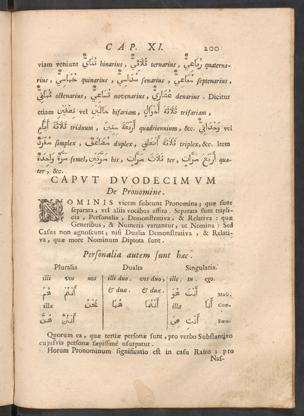 CAP. XI. 200
viam veniunt ثُنَائِيٌّ binarius, ثُلَاثِيٌّ ternarius, رُبَاعِيٌّ quaterna-
rius, خُمَاسِيٌّ quinarius, سُدَاسِيٌّ senarius, سُبَاعِيٌّ septenarius,
octenarius, تُسَاعِيٌّ novenarius, عُشَارِيٌّ denarius. Dicitur
etiam حَالَيْنِ vel bifariam, ثَلَاثَةَ أَحْوَالٍ trifariam,
ثَلَاثَةَ أَيَّامٍ triduum, أَرْبَعَ سِنِينَ quadriennium, &c. vel
simplex, duplex, triplex, &c. Item
مَرَّةً وَاحِدَةً semel, مَرَّتَيْنِ bis, ثَلَاثَ مَرَّاتٍ ter, أَرْبَعَ مَرَّاتٍ qua-
ter, &c.
CAPUT DUODECIMUM
De Pronomine.
NOMINIS vicem subeunt Pronomina; quæ sunt
separata, vel aliis vocibus affixa. Separata sunt tripli-
cia, Personalia, Demonstrativa, & Relativa: quæ
Generibus, & Numeris variantur, ut Nomina: sed
Casus non agnoscunt, nisi Dualia Demonstrativa, & Relati-
va, quæ more Nominum Diptota sunt.
Personalia autem sunt hæc.
Pluralis Dualis Singularis.
illi vos nos illi duo. vos duo, ille. tu. ego.
& duæ. & duæ. أَنْتَ هُوَ Masc.
هُمْ أَنْتُمْ
illæ نَحْنُ هُمَا أَنْتُمَا illa أَنَا Com.
هُنَّ أَنْتُنَّ أَنْتِ هِيَ Fœm.
Quorum ea, quæ tertiæ personæ sunt, pro verbo Substantivo
cujusvis personæ sæpissimè usurpatur.
Horum Pronominum significatio est in casu Recto; pro
Nas-